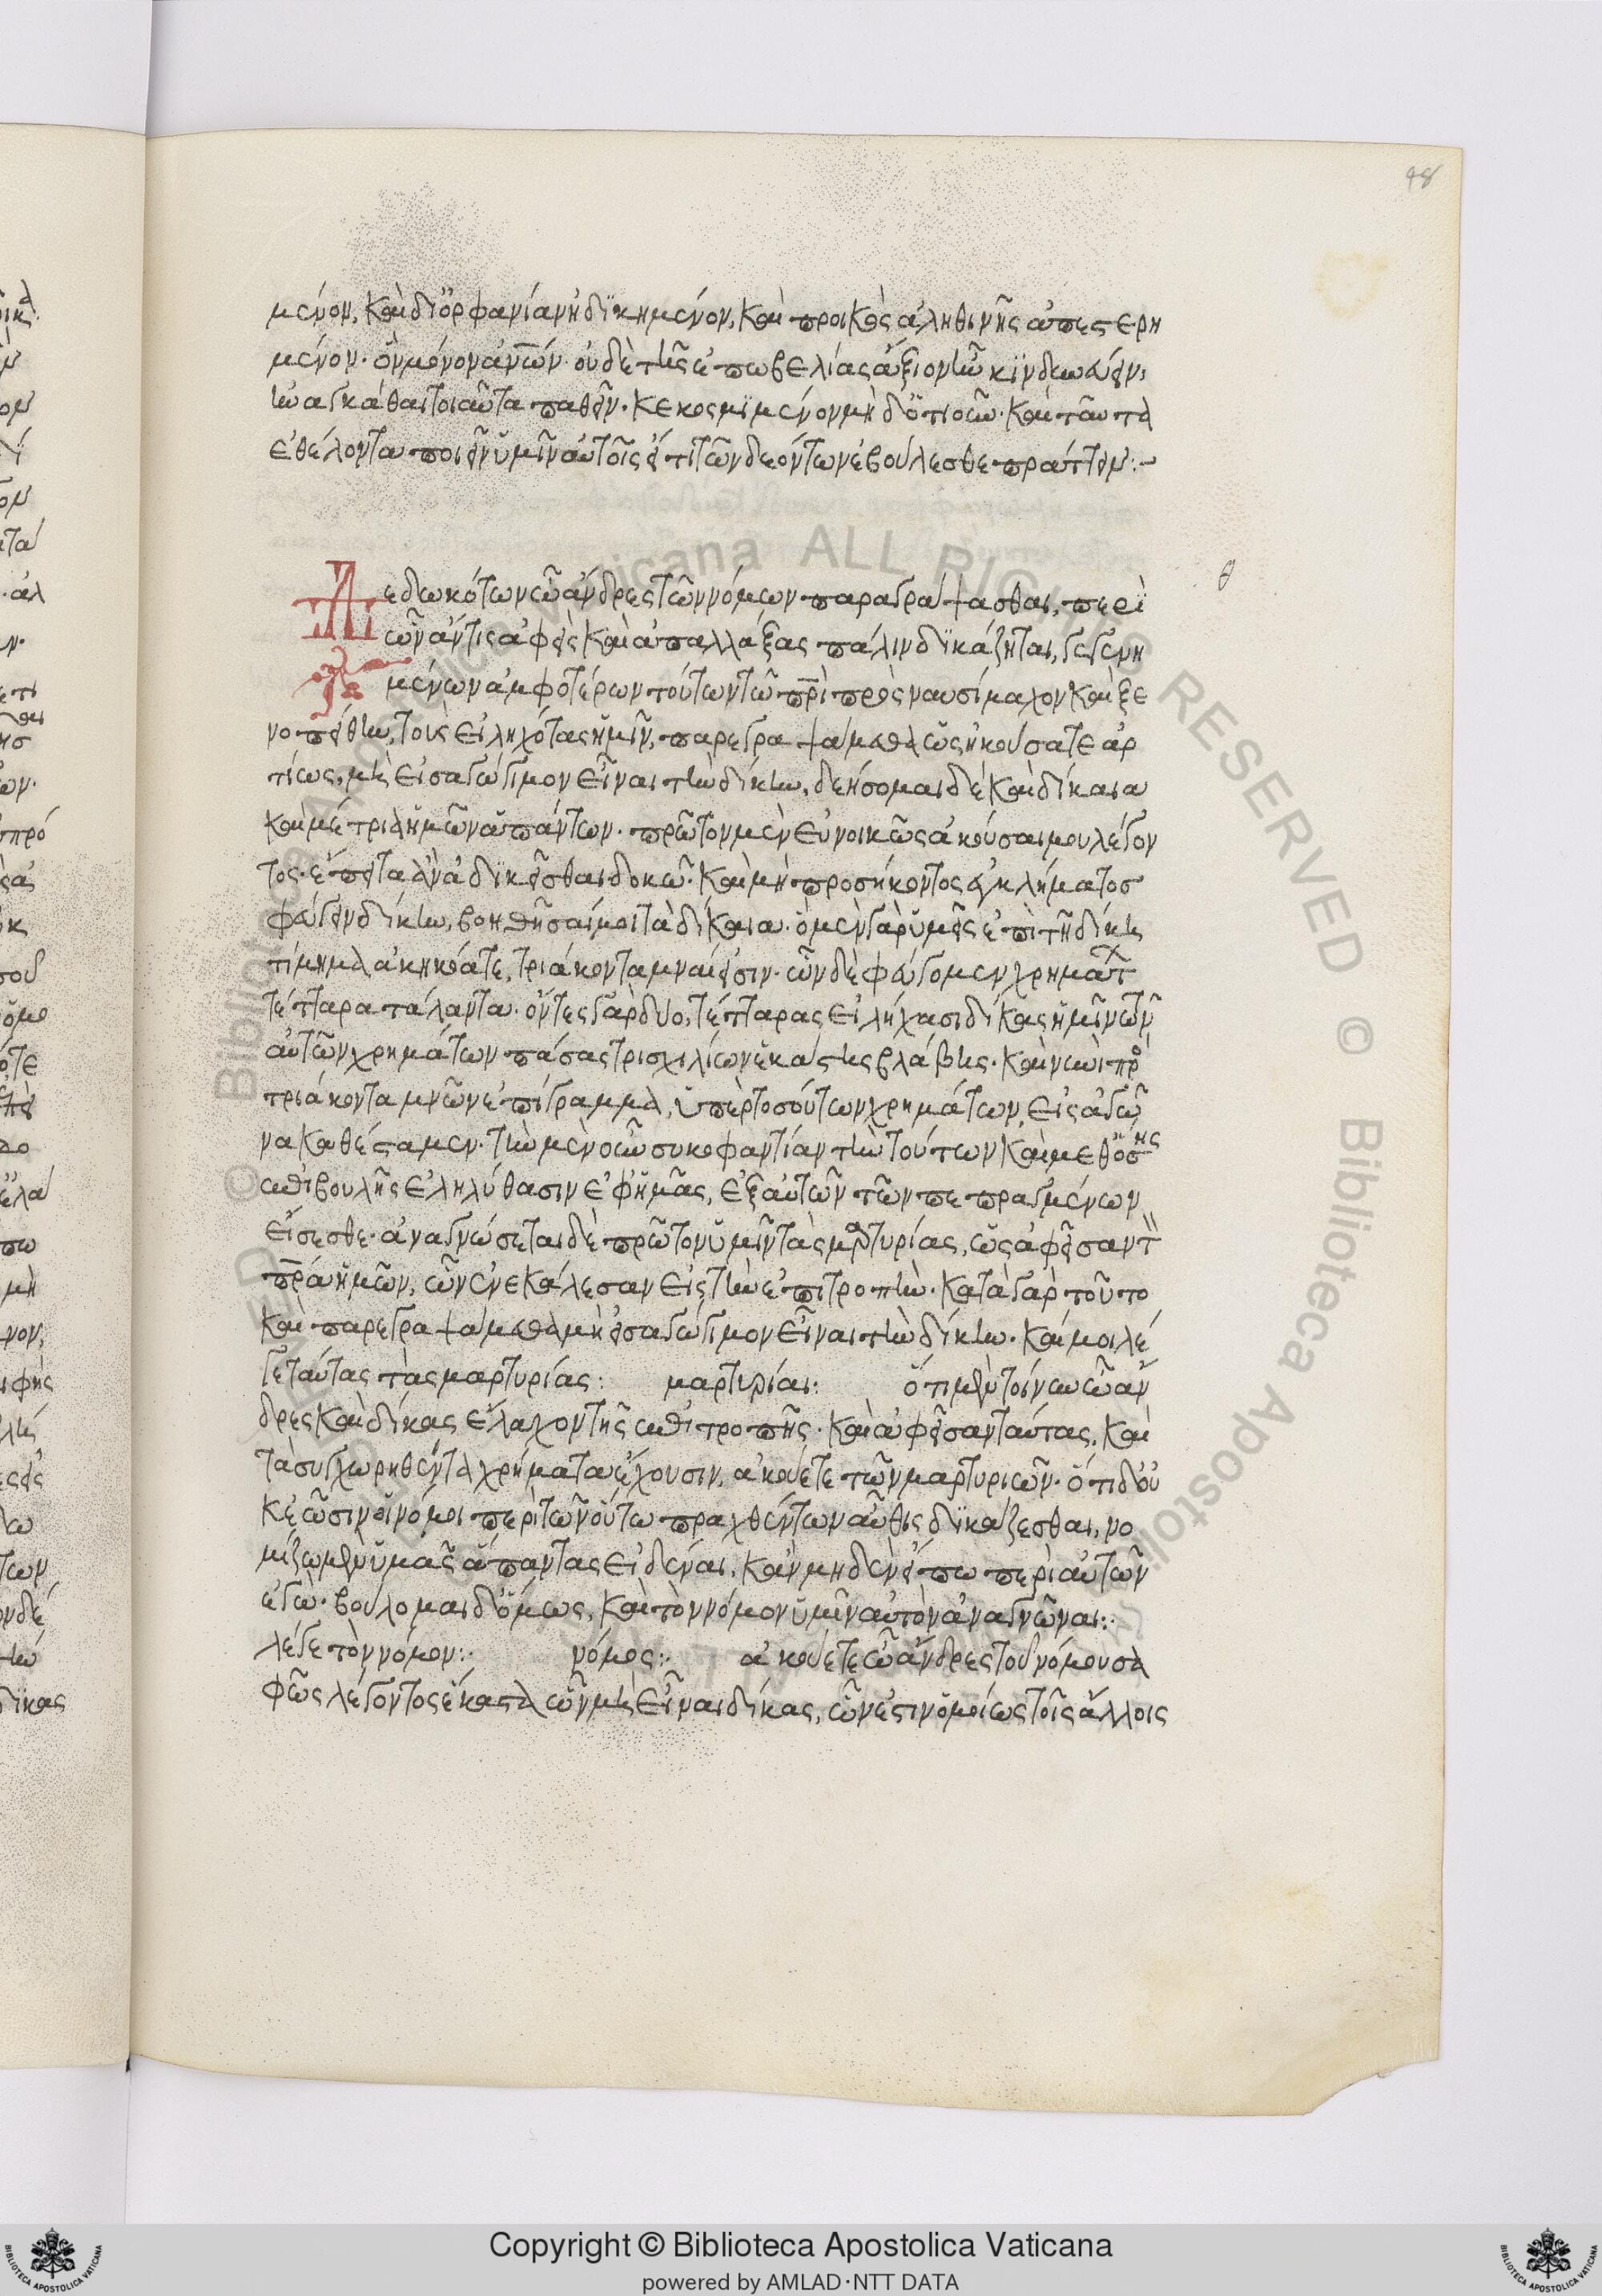 48
μένον, καὶ δι' ὀρφανίαν ἠδικημένον, καὶ προικὸς ἀληθινῆς ἀπεστερη
μένον· ὃν μόνον ἀνῶν· οὐδὲ τῆς ἐπωβελίας ἄξιον ἦν κινδυνεύειν,
ἠνάγκασθαι τοιαῦτα παθεῖν· κεκοσμιμένον μηδ' ὁτιοῦν· καὶ ταῦτα
ἐθέλοντα ποιεῖν ὑμῖν αὐτοῖς εἴ τι τῶν δεόντων ἐβούλεσθε πράττειν:
θ
Δεδωκότων ὦ ἄνδρες τῶν νόμων παραγράψασθαι, περὶ
ὧν ἄν τις ἀφεὶς καὶ ἀπαλλάξας πάλιν δικάζηται, γεγενη
μένων ἀμφοτέρων τούτων τῶ πρὶ πρὸς ναυσίμαχον καὶ ξε
νοπείθην, τοὺς εἰληχότας ἡμῖν, παρεγραψάμεθα ὡς ἠκούσατε ἀρ
τίως, μὴ εἰσαγώγιμον εἶναι τὴν δίκην, δεήσομαι δὲ καὶ δίκαια
καὶ μέτρια ἡμῶν ἁπάντων· πρῶτον μὲν εὐνοικῶς ἀκοῦσαι μου λέγον
τος· ἔπειτα ἂν ἀδικεῖσθαι δοκῶ· καὶ μὴ προσήκοντος ἐγκλήματος
φεύγειν δίκην, βοηθῆσαί μοι τὰ δίκαια· ὃ μὲν γὰρ ὑμεῖς ἐπὶ τῇ δίκῃ
τίμημα ἀκηκόατε, τριάκοντα μναῖ εἰσιν· ὧν δὲ φεύγομεν χρημάτ
τέτταρα τάλαντα· ὄντες γὰρ δύο, τέτταρας εἰλήχασι δίκας ἡμῖν τῶν
αὐτῶν χρημάτων πάσας τρισχιλίων ἑκάστης βλάβης· καὶ νυνὶ πρὸ
τριάκοντα μνῶν ἐπίγραμμα, ὑπὲρ τοσούτων χρημάτων, εἰς ἀγῶ
να καθέσταμεν· τὴν μὲν οὖν συκοφαντίαν τὴν τούτων καὶ μεθ' ὅσης
ἐπιβουλῆς ἐληλύθασιν ἐφ' ἡμᾶς, ἐξ αὐτῶν τῶν πεπραγμένων
εἴσεσθε· ἀναγνώσεται δὲ πρῶτον ὑμῖν τὰς μαρτυρίας, ὡς ἀφεῖσαν τ
πρα ἡμῶν, ὧν ἐνεκάλεσαν εἰς τὴν ἐπιτροπήν· κατὰ γὰρ τοῦτο
καὶ παρεγραψάμεθα μὴ εἰσαγώγιμον εἶναι τὴν δίκην· καί μοι λέ
γε ταύτας τὰς μαρτυρίας: μαρτυρίαι: ὅτι μὲν τοίνυν ὦ ἄν
δρες καὶ δίκας ἔλαχον τῆς ἐπιτροπῆς· καὶ ἀφεῖσαν ταύτας, καὶ
τὰ συγχωρηθέντα χρήματα ἔχουσιν, ἀκούετε τῶν μαρτυριῶν· ὅτι δ' οὐ
κ ἐῶσιν οἱ νόμοι περὶ τῶν οὕτω πραχθέντων αὖθις δικάζεσθαι, νο
μίζω μὲν ὑμᾶς ἅπαντας εἰδέναι, κἂν μηδὲν εἴπω περὶ αὐτῶν
ἐγώ· βούλομαι δ' ὅμως, καὶ τὸν νόμον ὑμῖν αὐτὸν ἀναγνῶναι:
λέγε τὸν νόμον: νόμος: ἀκούετε ὦ ἄνδρες τοῦ νόμου σα
φῶς λέγοντος ἕκαστα ὧν μὴ εἶναι δίκας, ὧν ἕν ἐστιν ὁμοίως τοῖς ἄλλοις
© Biblioteca Apostolica Vaticana ALL RIGHTS RESERVED © Biblioteca Apostolica
Copyright © Biblioteca Apostolica Vaticana
powered by AMLAD·NTT DATA